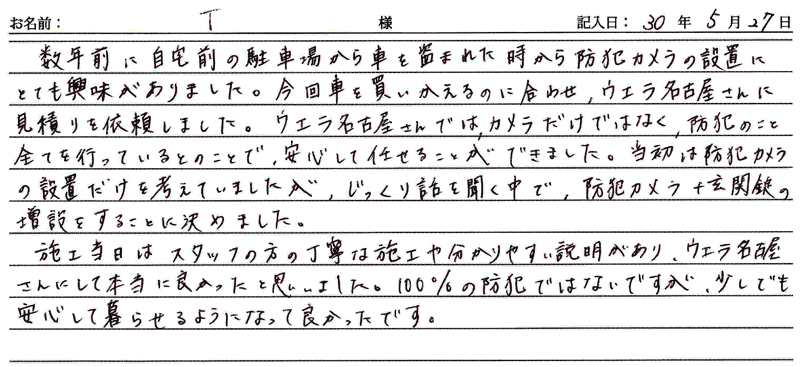 お名前： T 様 記入日：30年5月27日
数年前に自宅前の駐車場から車を盗まれた時から防犯カメラの設置に
とても興味がありました。今回車を買いかえるのに合わせ、ウエラ名古屋さんに
見積りを依頼しました。ウエラ名古屋さんでは、カメラだけではなく、防犯のこと
全てを行っているとのことで、安心して任せることができました。当初は防犯カメラ
の設置だけを考えていましたが、じっくり話を聞く中で、防犯カメラ＋玄関錠の
増設をすることに決めました。
施工当日はスタッフの方の丁寧な施工や分かりやすい説明があり、ウエラ名古屋
さんにして本当に良かったと思いました。100%の防犯ではないですが、少しでも
安心して暮らせるようになって良かったです。